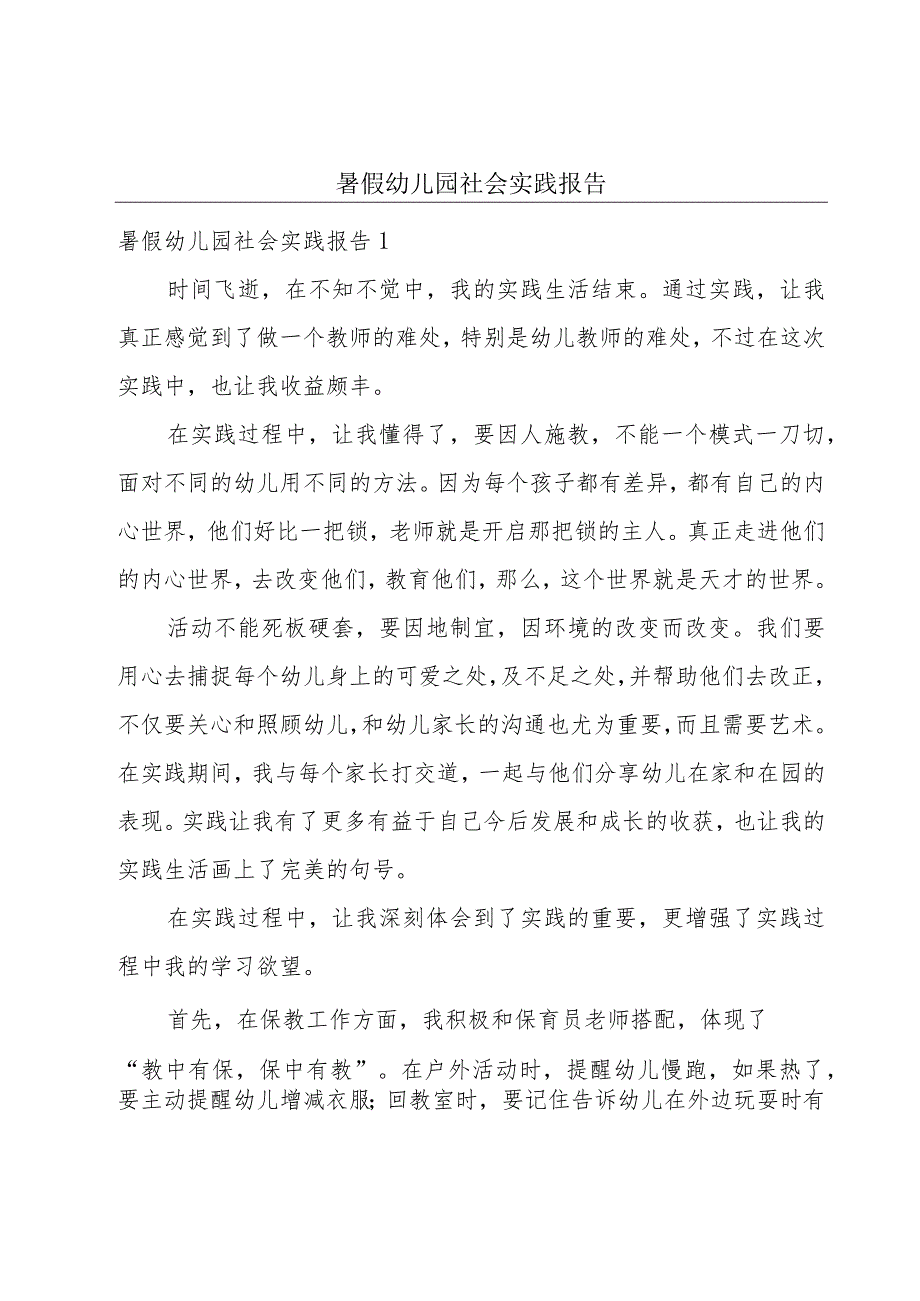 暑假幼儿园社会实践报告
暑假幼儿园社会实践报告1
时间飞逝，在不知不觉中，我的实践生活结束。通过实践，让我
真正感觉到了做一个教师的难处，特别是幼儿教师的难处，不过在这次
实践中，也让我收益颇丰。
在实践过程中，让我懂得了，要因人施教，不能一个模式一刀切，
面对不同的幼儿用不同的方法。因为每个孩子都有差异，都有自己的内
心世界，他们好比一把锁，老师就是开启那把锁的主人。真正走进他们
的内心世界，去改变他们，教育他们，那么，这个世界就是天才的世界。
活动不能死板硬套，要因地制宜，因环境的改变而改变。我们要
用心去捕捉每个幼儿身上的可爱之处，及不足之处，并帮助他们去改正，
不仅要关心和照顾幼儿，和幼儿家长的沟通也尤为重要，而且需要艺术。
在实践期间，我与每个家长打交道，一起与他们分享幼儿在家和在园的
表现。实践让我有了更多有益于自己今后发展和成长的收获，也让我的
实践生活画上了完美的句号。
在实践过程中，让我深刻体会到了实践的重要，更增强了实践过
程中我的学习欲望。
首先，在保教工作方面，我积极和保育员老师搭配，体现了
“教中有保，保中有教”。在户外活动时，提醒幼儿慢跑，如果热了，
要主动提醒幼儿增减衣服；回教室时，要记住告诉幼儿在外边玩耍时有